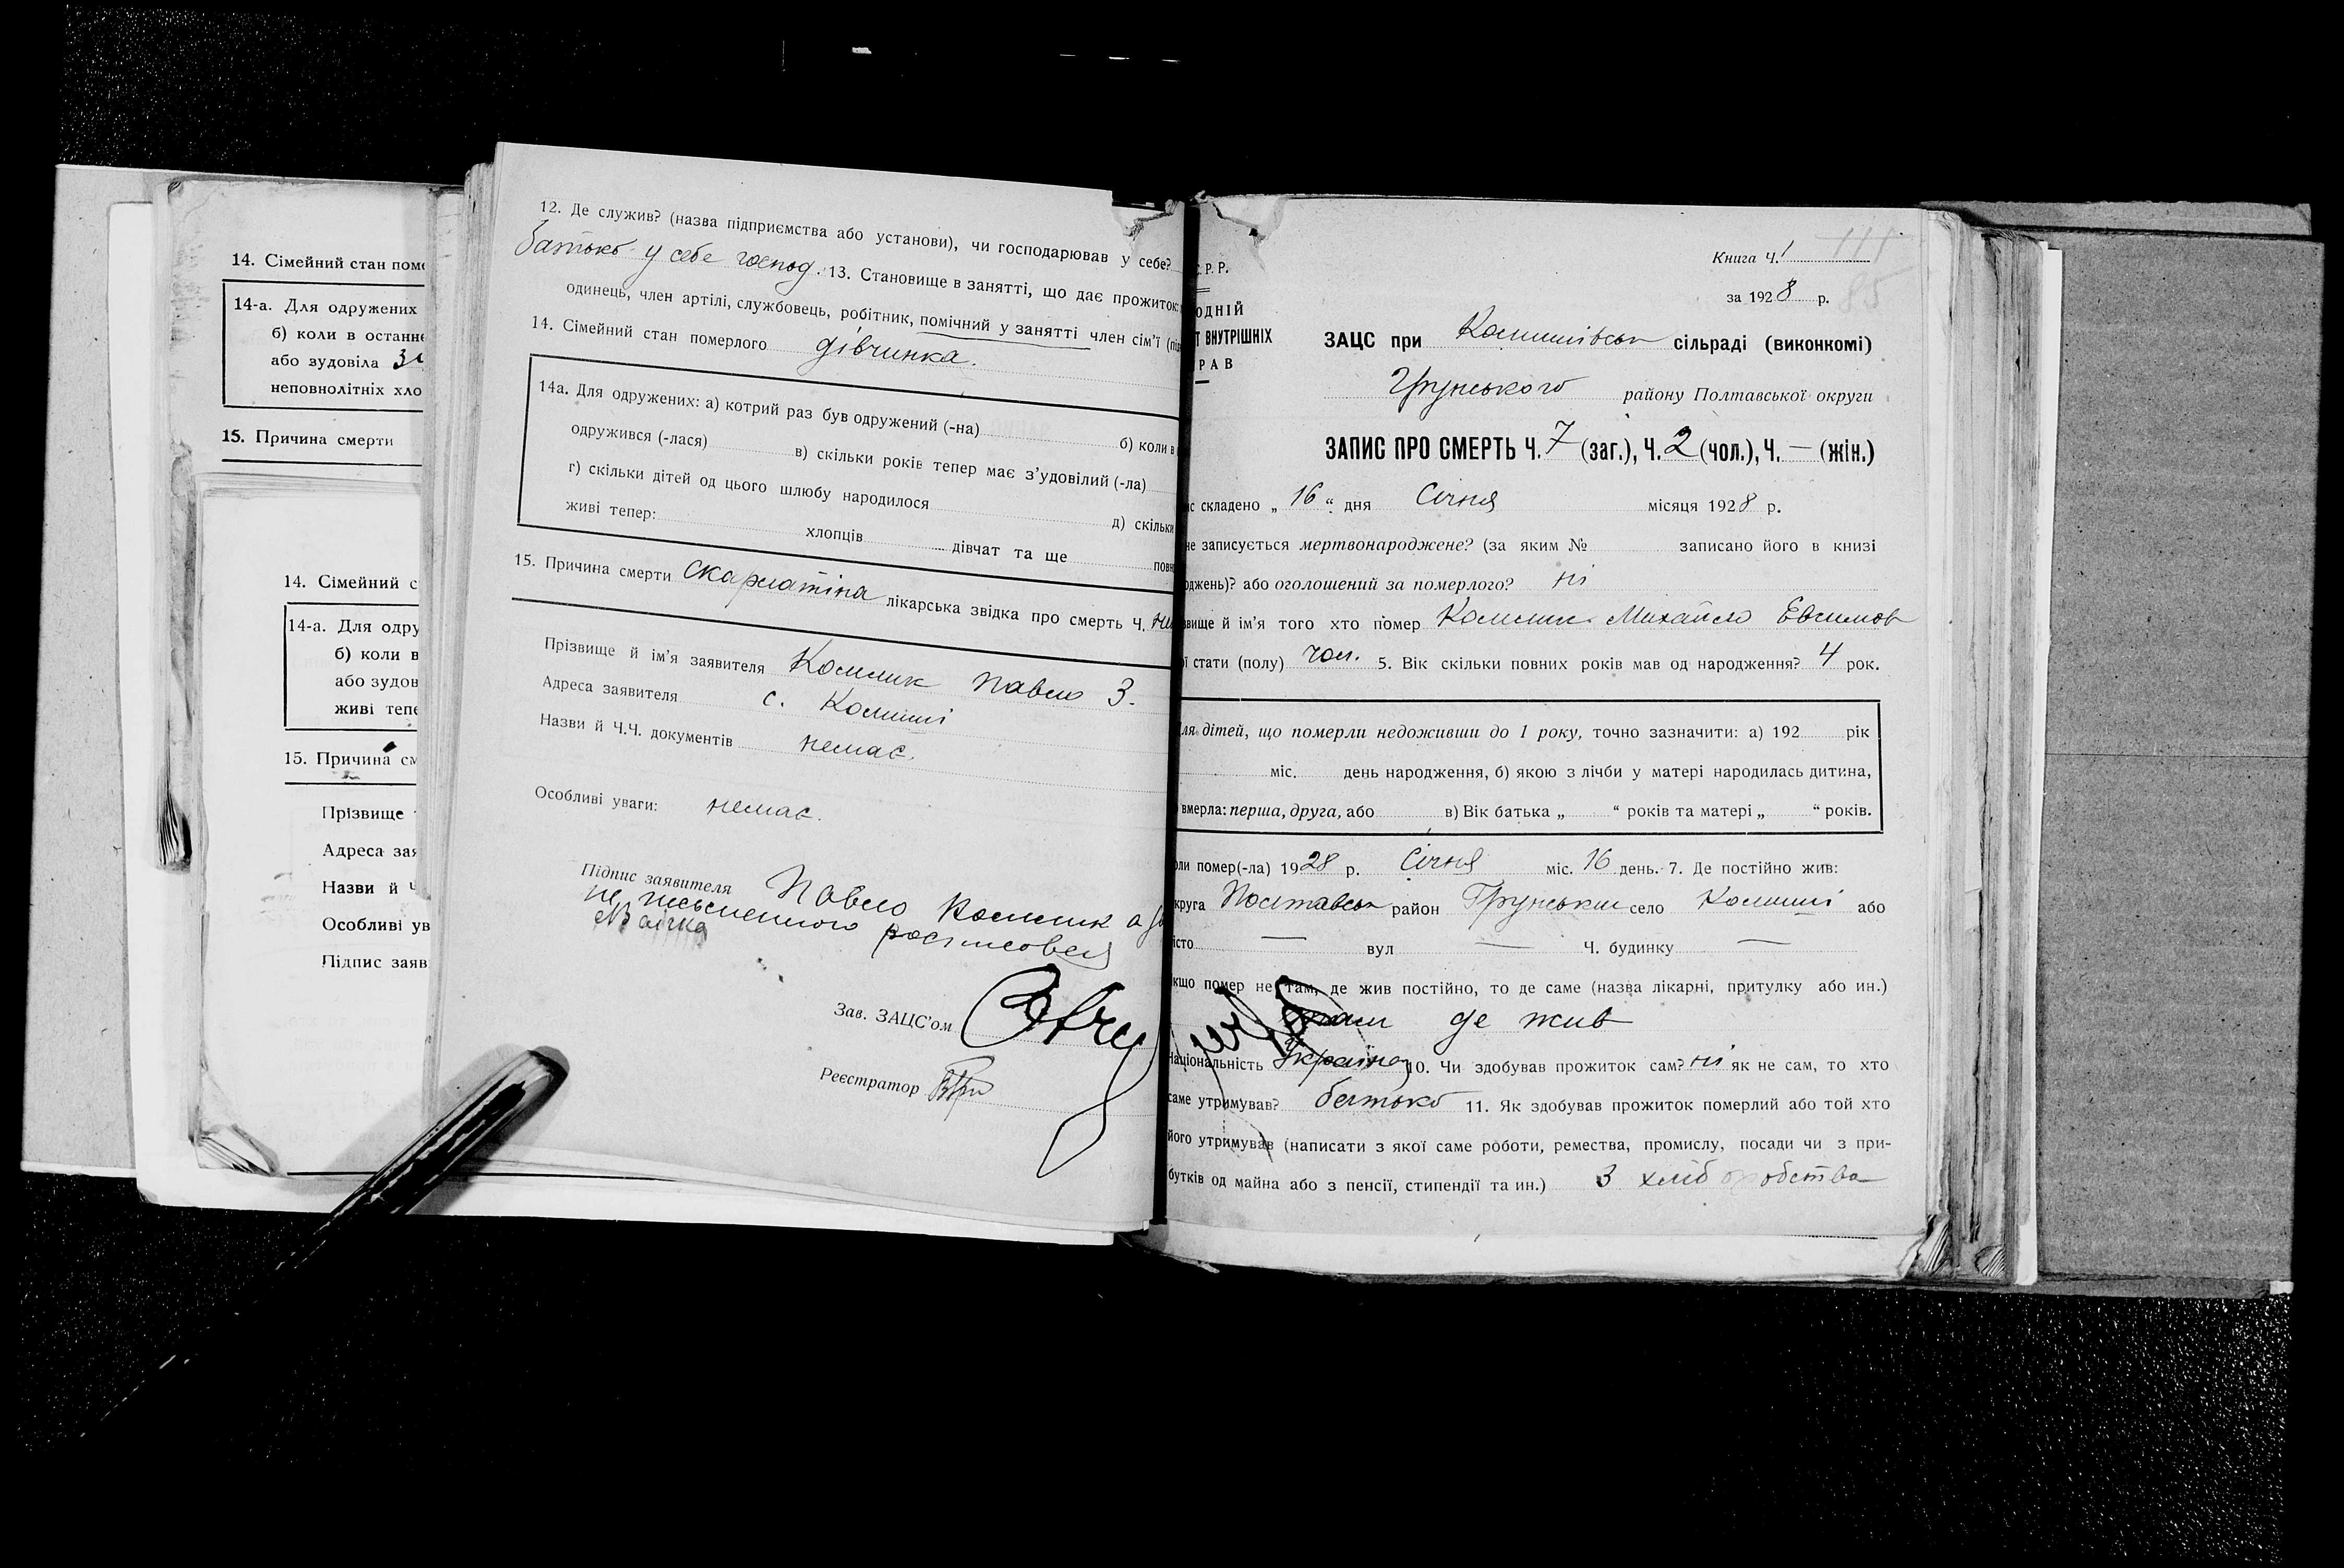 14. Сімейний стан поме
14-а. Для одружених
б) коли в останнє
або зудовіла
неповнолітніх хло
15. Причина смерти
14. Сімейний с
14-а. Для одру
б) коли в
або зудов
живі тепе
15. Причина см
Прізвище
Адреса зая
Назви й Ч
Особливі ув
Підпис заяв
12. Де служив? (назва підприємства або установи), чи господарював у себе?
батько у себе господ. 13. Становище в занятті, що дає прожиток:
одинець, член артілі, службовець, робітник, помічний у занятті член сім'ї (під
14. Сімейний стан померлого дівчинка.
14а. Для одружених: а) котрий раз був одружений (-на) б) коли в
одружився (-лася) в) скільки років тепер має з'удовілий (-ла)
г) скільки дітей од цього шлюбу народилося д) скільки
живі тепер: хлопців дівчат та ще повн
15. Причина смерти скарлатіна лікарська звідка про смерть Ч.
Прізвище й ім'я заявителя Павло З.
Адреса заявителя с.
Назви й Ч.Ч. документів немає.
Особливі уваги: немає.
Підпис заявителя Павло а за
росписовея
Зав. ЗАЦС'ом
Реєстратор
С.Р.Р.
ОДНІЙ
Т ВНУТРІШНІХ
РАВ
Книга Ч. 1
111
за 1928 р.
85
ЗАЦС при сільраді (виконкомі)
Грунського району Полтавської округи
ЗАПИС ПРО СМЕРТЬ Ч. 7 (заг.), Ч. 2 (чол.), Ч. — (жін.)
ис складено „ 16 “ дня Січня місяця 1928 р.
не записується мертвонароджене? (за яким № записано його в книзі
оджень)? або оголошений за померлого? ні
звище й ім'я того хто помер Михайло Евфимов
ої стати (полу) чол. 5. Вік скільки повних років мав од народження? 4 рок.
ля дітей, що померли недоживши до 1 року, точно зазначити: а) 192 рік
міс. день народження, б) якою з лічби у матері народилась дитина,
вмерла: перша, друга, або в) Вік батька „ “ років та матері „ “ років.
оли помер(-ла) 1928 р. Січня міс. 16 день. 7. Де постійно жив:
круга Полтавськ район Грунський село або
істо — вул — Ч. будинку —
кщо помер не там, де жив постійно, то де саме (назва лікарні, притулку або ин.)
там де жив
Національність Україн. 10. Чи здобував прожиток сам? ні як не сам, то хто
саме утримував? батько 11. Як здобував прожиток померлий або той хто
його утримував (написати з якої саме роботи, ремества, промислу, посади чи з при-
бутків од майна або з пенсії, стипендії та ин.) З хліборобства